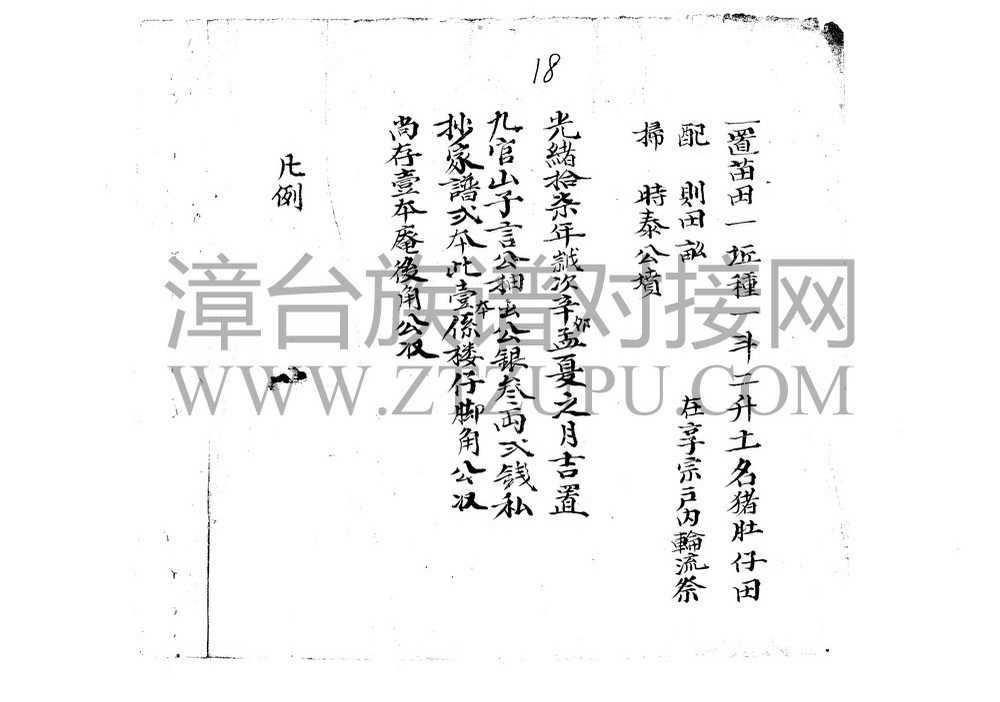 18
一置苗田一坵種一斗二升土名猪肚仔田
配 則田畝 在享宗戶内輪流祭
掃 時泰公墳
光緒拾柒年歲次辛卯孟夏之月吉置
九官山子言公抽出公銀叁両弍錢私
抄家譜弍本此壹本係楼仔脚角公収
尚存壹本庵後角公収
凡例
漳台族谱对接网
WWW.ZTZUPU.COM